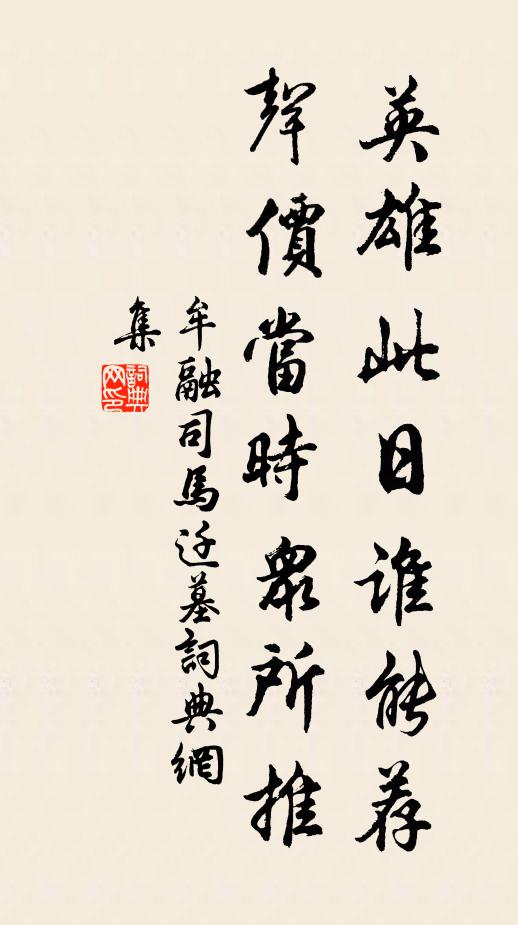 英雄此日誰能荐
聲價當時眾所推
牟融司馬迁墓詞典網
集
詞典网印